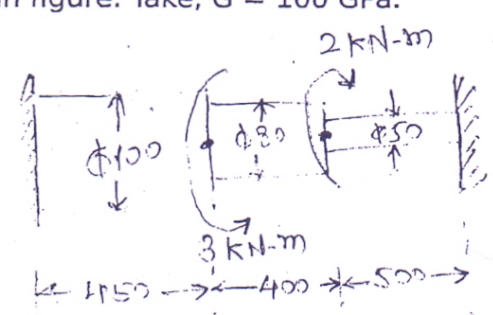 in figure. Take, G = 100 GPa.
2 KN-m
φ100 φ80 φ50
3 KN-m
450 400 500